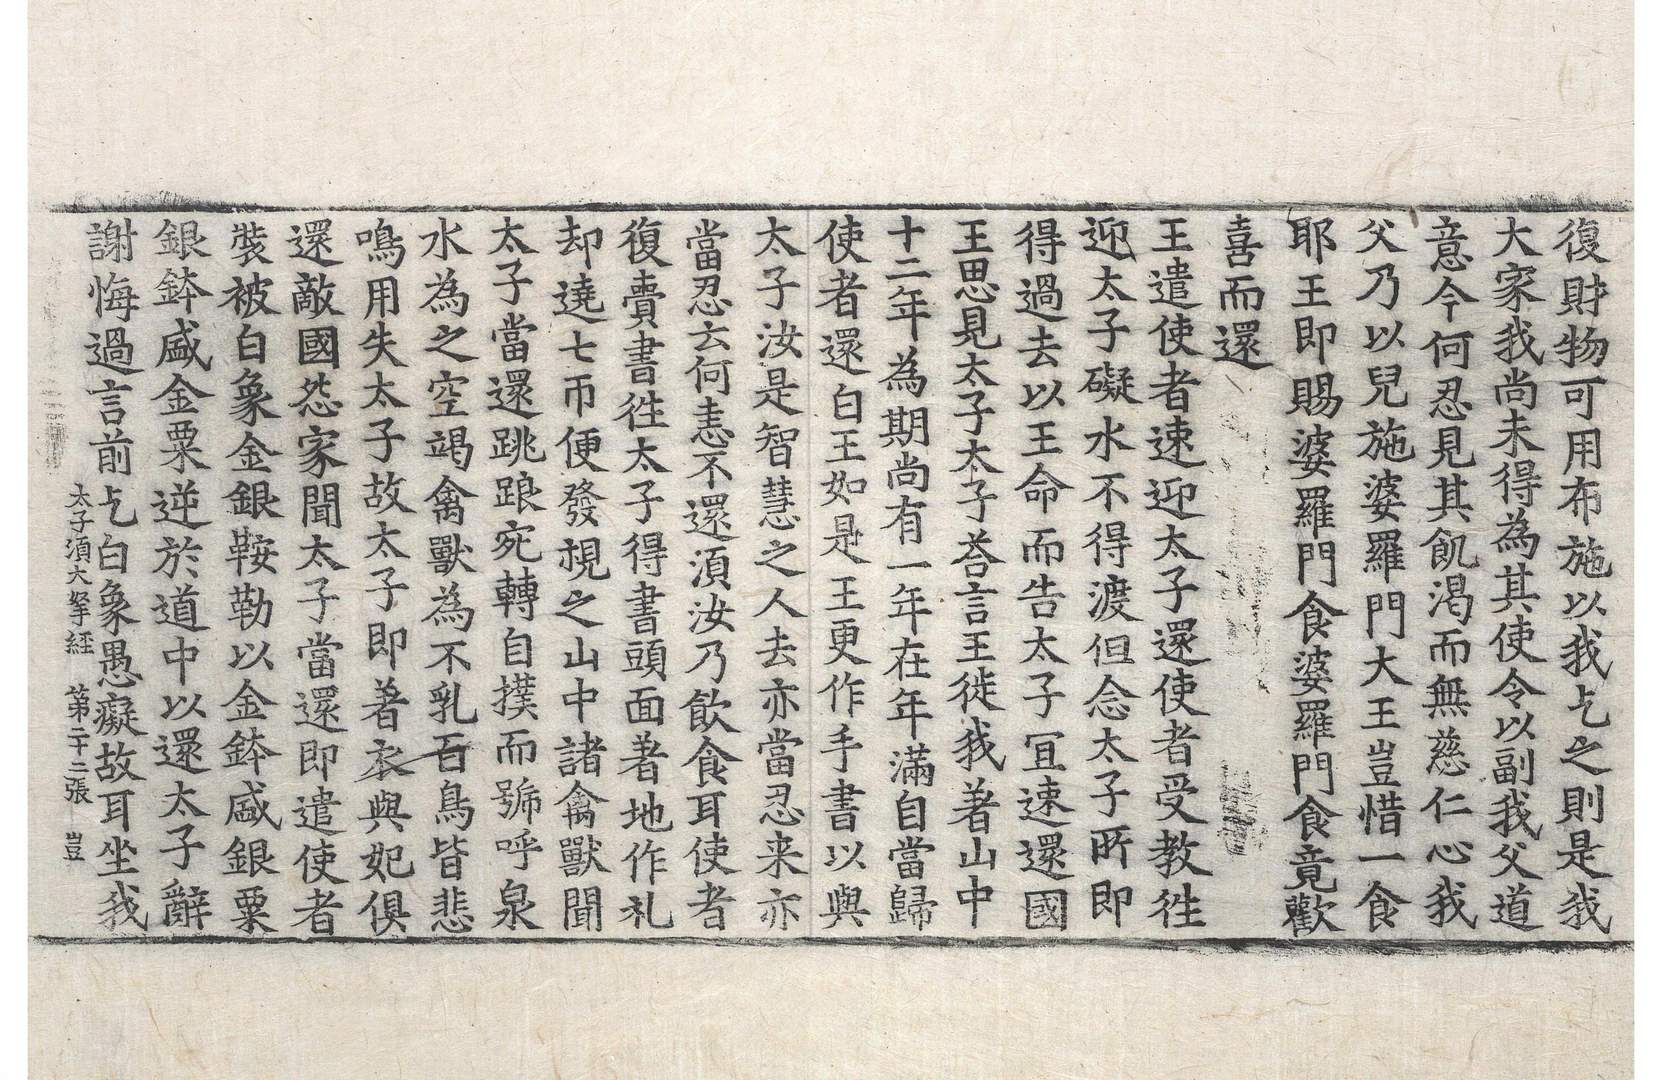 復財物可用布施以我乞之則是我
大家我尚未得為其使令以副我父道
意今何忍見其飢渴而無慈仁心我
父乃以兒施婆羅門大王豈惜一食
耶王即賜婆羅門食婆羅門食竟歡
喜而還
王遣使者速迎太子還使者受教徃
迎太子礙水不得渡但念太子所即
得過去以王命而告太子冝速還國
王思見太子太子荅言王徙我著山中
十二年為期尚有一年在年滿自當歸
使者還白王如是王更作手書以與
太子汝是智慧之人去亦當忍来亦
當忍云何恚不還湏汝乃飲食耳使者
復賷書徃太子得書頭面著地作礼
却遶七帀便發視之山中諸禽獸聞
太子當還跳踉宛轉自撲而號呼泉
水為之空竭禽獸為不乳百鳥皆悲
鳴用失太子故太子即著衣與妃俱
還敵國怨家聞太子當還即遣使者
裝被白象金銀鞍勒以金鉢盛銀粟
銀鉢盛金粟逆於道中以還太子辭
謝悔過言前乞白象愚癡故耳坐我
太子湏大拏經 第二十二張 豈